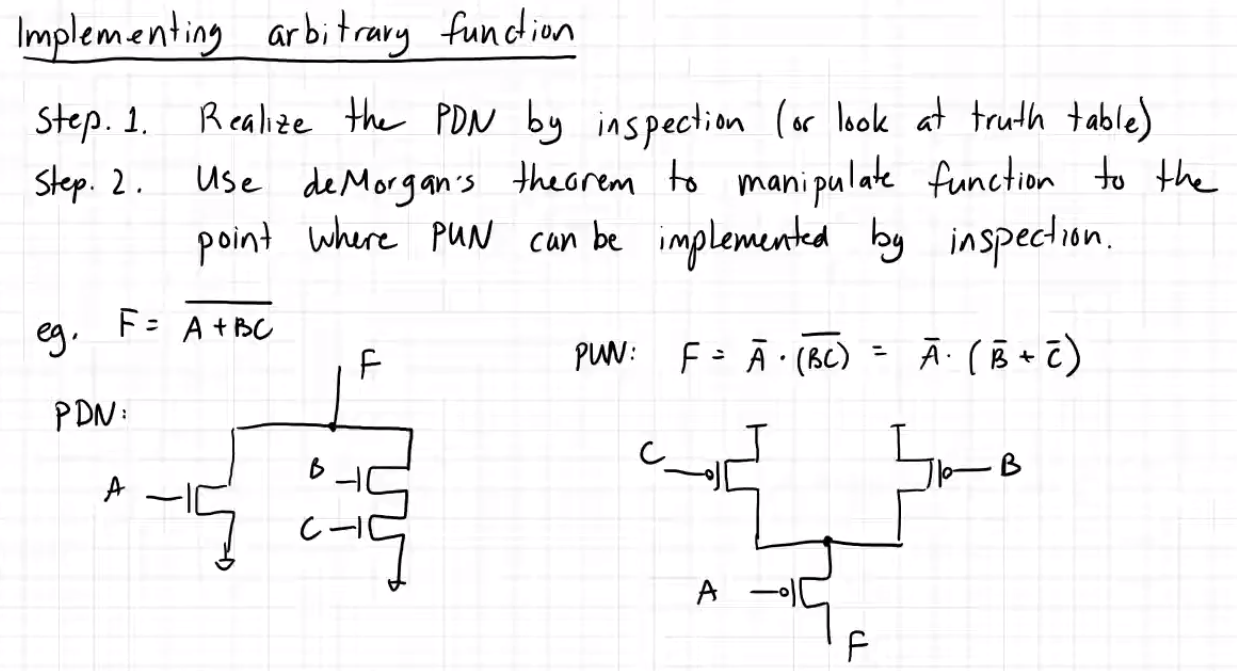 Implementing arbitrary function
Step. 1. Realize the PDN by inspection (or look at truth table)
Step. 2. Use deMorgan's theorem to manipulate function to the
point where PUN can be implemented by inspection.
eg. F = \overline{A + BC}
PUN: F = Ā · \overline{(BC)} = Ā · ( B̄ + C̄ )
F
PDN:
A
B
C
C
B
A
F